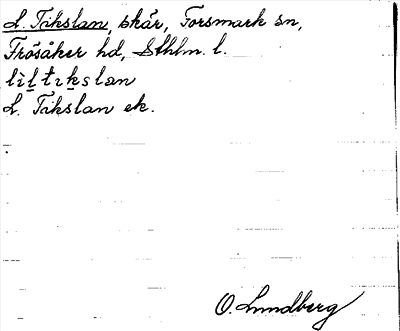 L. Tikslan, skär, Forsmark sn,
Frösåker hd, Sthlm. l.
lìḻtıḵslan
L. Tikslan ek.
O. Lundberg